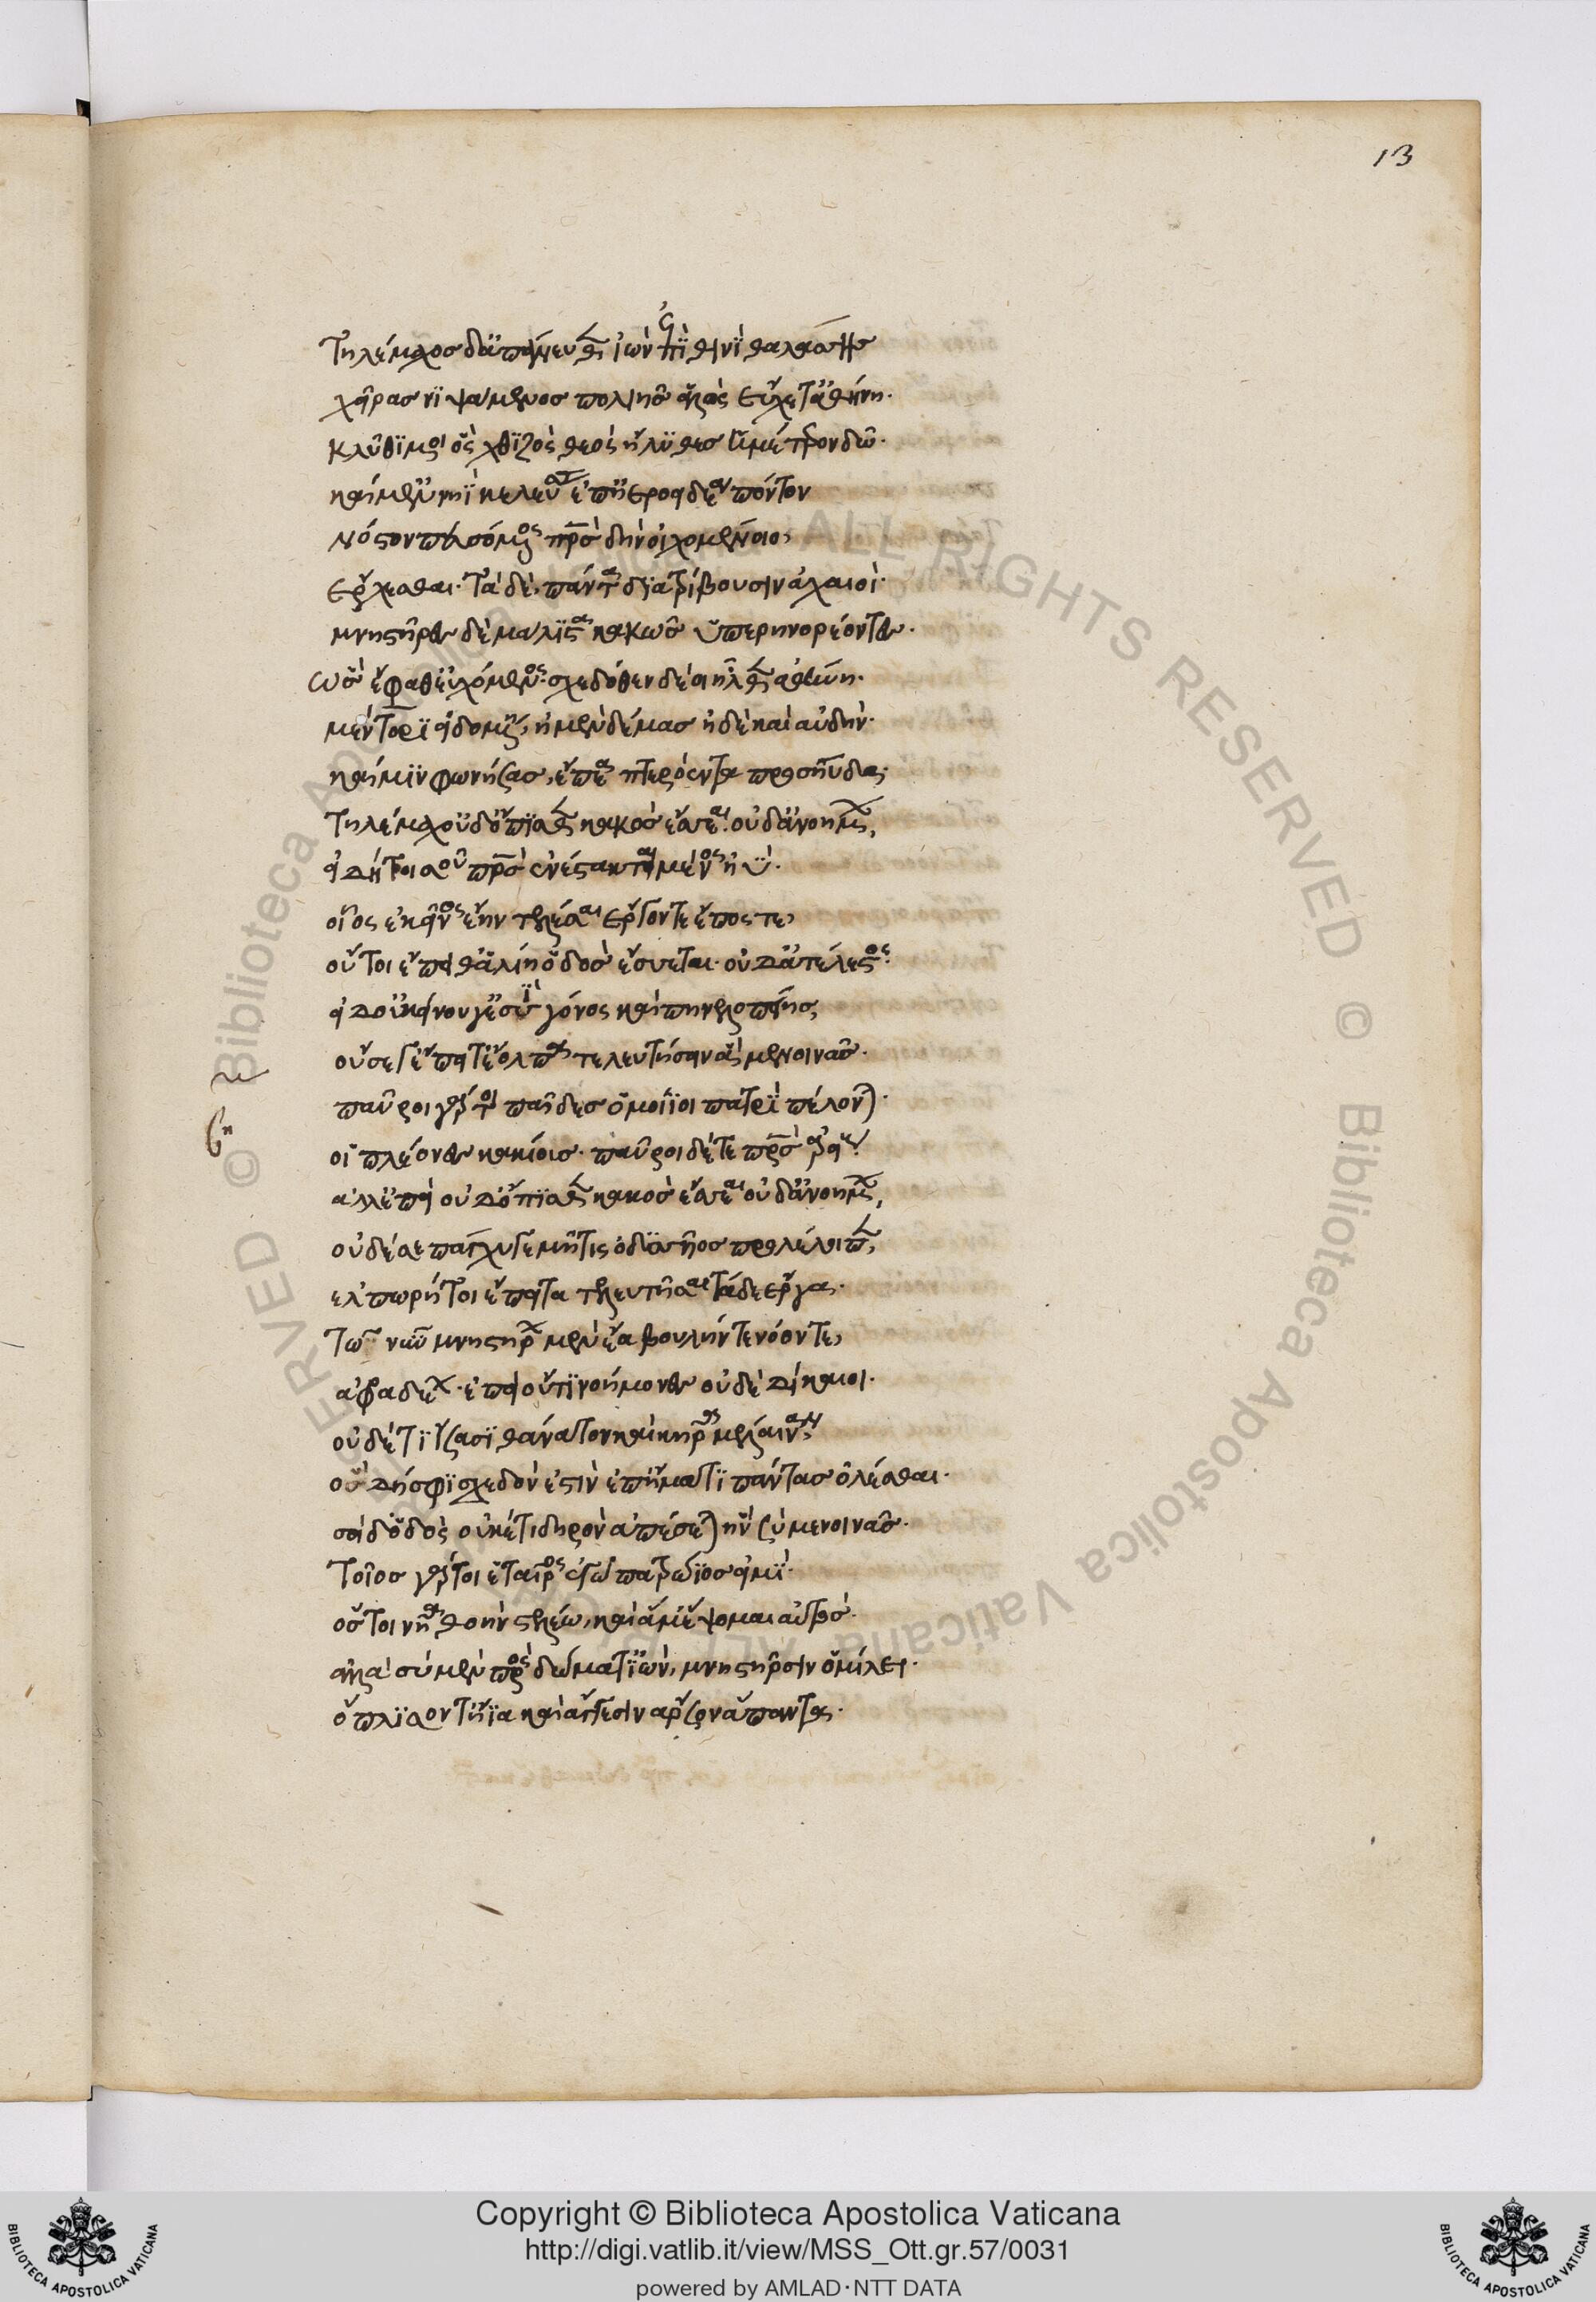 13
Τηλέμαχος δ' ἀπάνευθε ἰὼν ἐπὶ θινὶ θαλάσσης
χεῖρας νιψάμενος πολιῆς ἁλὸς εὔχετ' ἀθήνη.
κλῦθί μοι ὃς χθιζὸς θεὸς ἤλυθες ἡμέτερον δῶ.
καί μ' ἐν νηῒ κέλευσας ἐπ' ἠεροειδέα πόντον
νόστον πευσόμενος πατρὸς δὴν οἰχομένοιο,
ἔρχεσθαι. τὰ δὲ πάντα διατρίβουσιν ἀχαιοί.
μνηστῆρες δὲ μάλιστα κακῶς ὑπερηνορέοντες.
ὣς ἔφατ' εὐχόμενος. σχεδόθεν δέ οἱ ἦλθεν ἀθήνη.
μέντορι εἰδομένη, ἠμὲν δέμας ἠδὲ καὶ αὐδήν.
καί μιν φωνήσας, ἔπεα πτερόεντα προσηύδα,
Τηλέμαχ' οὐδ' ὄπιθεν κακὸς ἔσσεαι. οὐδ' ἀνοήμων,
εἰ δή τοι σοῦ πατρὸς ἐνέστακται μένος ἠΰ.
οἷος ἐκεῖνος ἔην τελέσαι ἔργον τε ἔπος τε,
οὔ τοι ἔπειθ' ἁλίη ὁδὸς ἔσσεται. οὐδ' ἀτέλεστος.
εἰ δ' οὐ κείνου γ' ἐσσὶ γόνος καὶ πηνελοπείης,
οὐ σέ γ' ἔπειτ' ἔολπα τελευτήσειν ἃ μενοινᾷς.
παῦροι γάρ τοι παῖδες ὁμοῖοι πατρὶ πέλονται.
οἱ πλέονες κακίους. παῦροι δέ τε πατρὸς ἀρείους.
ἀλλ' ἐπεὶ οὐδ' ὄπιθεν κακὸς ἔσσεαι οὐδ' ἀνοήμων,
οὐδέ σε πάγχυ γε μῆτις ὀδυσσῆος προλέλοιπεν,
ἐλπωρή τοι ἔπειτα τελευτῆσαι τάδε ἔργα.
τῶ νῦν μνηστήρων μὲν ἔα βουλήν τε νόον τε,
ἀφραδέων. ἐπεὶ οὔτι νοήμονες οὐδὲ δίκαιοι.
οὐδέ τι ἴσασι θάνατον καὶ κῆρα μέλαιναν.
ὃς δή σφι σχεδόν ἐστιν ἐπ' ἤματι πάντας ὀλέσθαι.
σοὶ δ' ὁδὸς οὐκέτι δηρὸν ἀπέσσεται ἣν σὺ μενοινᾷς.
τοῖος γάρ τοι ἑταῖρος ἐγὼ πατρώϊος εἰμί.
ὅς τοι νῆα θοὴν στελέω, καὶ ἅμ' ἕψομαι αὐτός.
ἀλλὰ σὺ μὲν πρὸς δώματ' ἰὼν, μνηστῆρσιν ὁμίλει.
ὅπλισόν τ' ἤϊα καὶ ἄγγεσιν ἄρσον ἅπαντα.
Copyright © Biblioteca Apostolica Vaticana
http://digi.vatlib.it/view/MSS_Ott.gr.57/0031
powered by AMLAD·NTT DATA